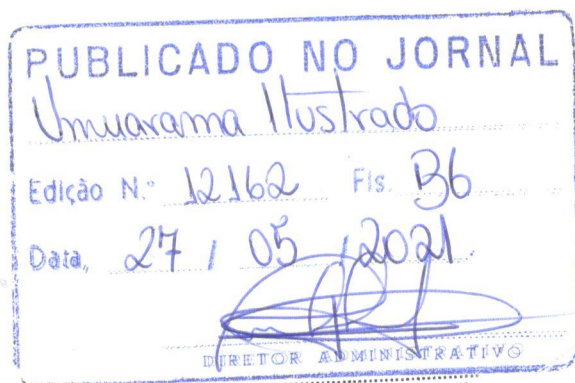 PUBLICADO NO JORNAL
Umuarama Ilustrado
Edição N.º 12162 Fls. B6
Data, 27 / 05 / 2021
DIRETOR ADMINISTRATIVO